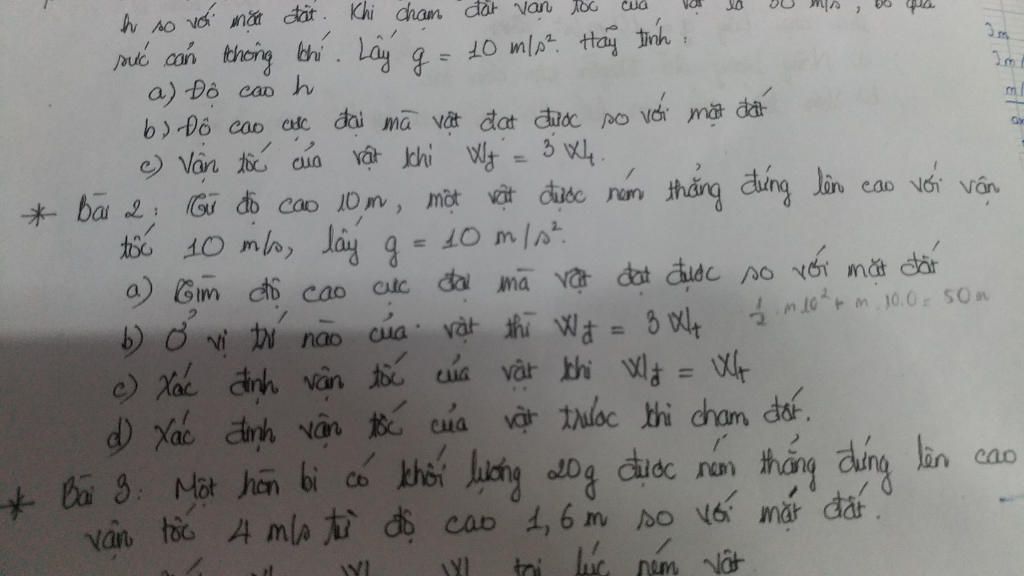 h so với mặt đất. Khi chạm đất vận tốc của vật là 30 m/s, bỏ qua
sức cản không khí. Lấy g = 10 m/s². Hãy tính:
a) Độ cao h
b) Độ cao cực đại mà vật đạt được so với mặt đất
c) Vận tốc của vật khi Wđ = 3 Wt.
* Bài 2: Từ độ cao 10m, một vật được ném thẳng đứng lên cao với vận
tốc 10 m/s, lấy g = 10 m/s².
a) Tìm độ cao cực đại mà vật đạt được so với mặt đất
b) Ở vị trí nào của vật thì Wđ = 3 Wt
1/2 · m10² + m . 10.0 = 50m
c) Xác định vận tốc của vật khi Wđ = Wt
d) Xác định vận tốc của vật trước khi chạm đất.
* Bài 3: Một hòn bi có khối lượng 20g được ném thẳng đứng lên cao
vận tốc 4 m/s từ độ cao 1,6 m so với mặt đất.
tại lúc ném vật